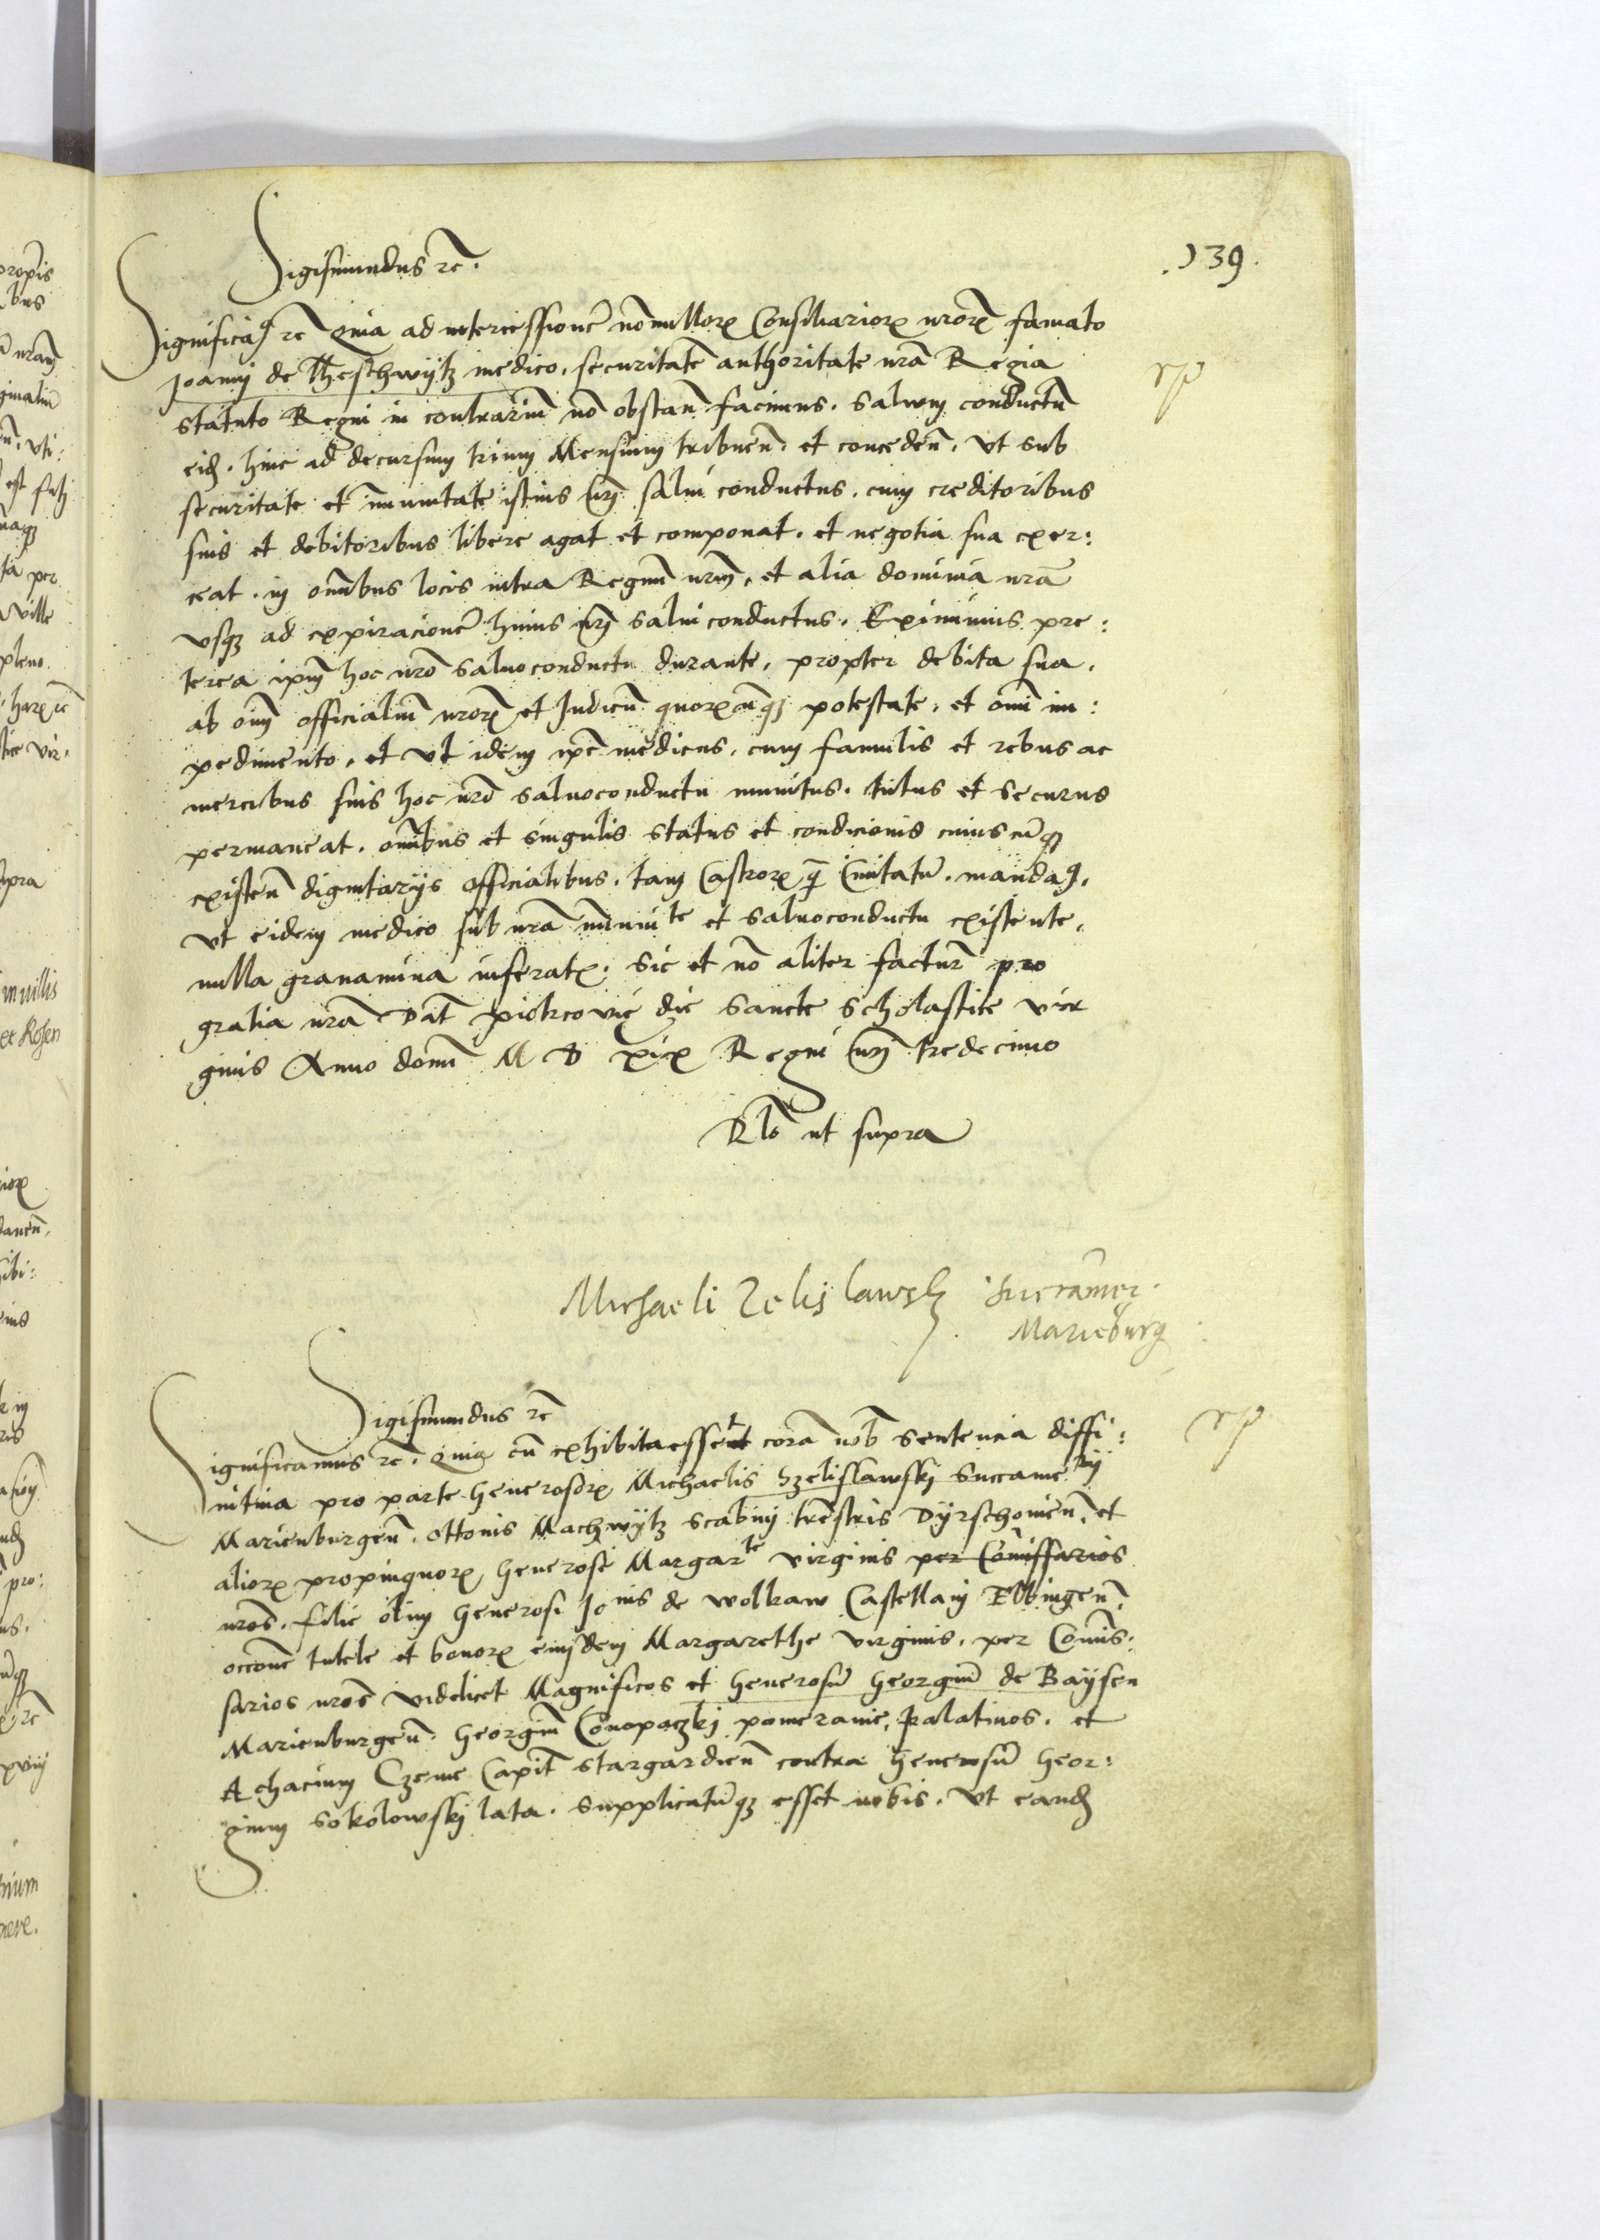 .139.
Sigismundus rc̄.
Significaꝰ rc̄ Quia ad intercessionē nōnullorꝝ Consiliariorꝝ nrorꝝ famato
Joanni de Theschwytz medico. securitatē authoritate nrā Regia
statuto Regni in contrariū nō obstan̄ facimus. saluum conductū
eidꝫ. hinc ad decursum trium Mensium tribuen̄. et conceden̄. vt sub
securitate et īmunitate istius nrī salui conductus. cum creditoribus
suis et debitoribus libere agat et componat. et negotia sua exer:
ceat. in oīnibus locis intra Regnū nrm̄, et alia dominia nrā
vsqꝫ ad expiracionē huius nrī salui conductus. Eximimus pre:
terea ipm̄ hoc nrō saluoconductu durante, propter debita sua,
ab oīm officialiū nrorꝝ et Judicū quorꝝcūqꝫ potestate, et omī im:
pedimento, et vt idem ipē medicus, cum famulis et rebus ac
mercibus suis hoc nrō saluoconductu munitus. tutus et securus
permaneat. omībus et singulis status et condicionis cuiuscūqꝫ
existen̄ dignitarijs officialibus. tam Castrorꝝ q̄ Ciuitatū. mandaꝰ.
vt eidem medico sub nrā īmunite et saluoconductu existente,
nulla grauamina inferatꝝ. sic et nō aliter facturī pro
gratia nrā Dat̄ piotrcovię die sancte Scholastice vir
ginis Anno domī M D xix Regni nrī tredecimo
Rlō ut supra
Michaeli Zelislawsky Succamer.
Marieburg
Sigismundus rc̄
Significamus rc̄. Quia cū exhibita esset corā nob̄ sentencia diffi:
nitiua pro parte Generosorꝝ Michaelis Szelislawskj Succamerrij
Marienburgen̄. Ottonis Machwytz scabini trēstris Dyrschouien̄. et
aliorꝝ propinquorꝝ Generose Margarte virginis per Comissarios
nros. filie olim Generosi Jonis de wolkaw Castellani Elbingen̄.
occōne tutele et bonorꝝ eiusdem Margarethe virginis. per Comis:
sarios nros videlicet Magnificos et Generosū Georgiū de Baysen
Marienburgen̄. Georgiū Conopaczkj pomeranie, palatinos. et
Achacium Czeme Capit̄ stargardien̄ contra Generosū Geor:
gium Sokolowskj lata. supplicatūqꝫ esset nobis. vt eandꝫ